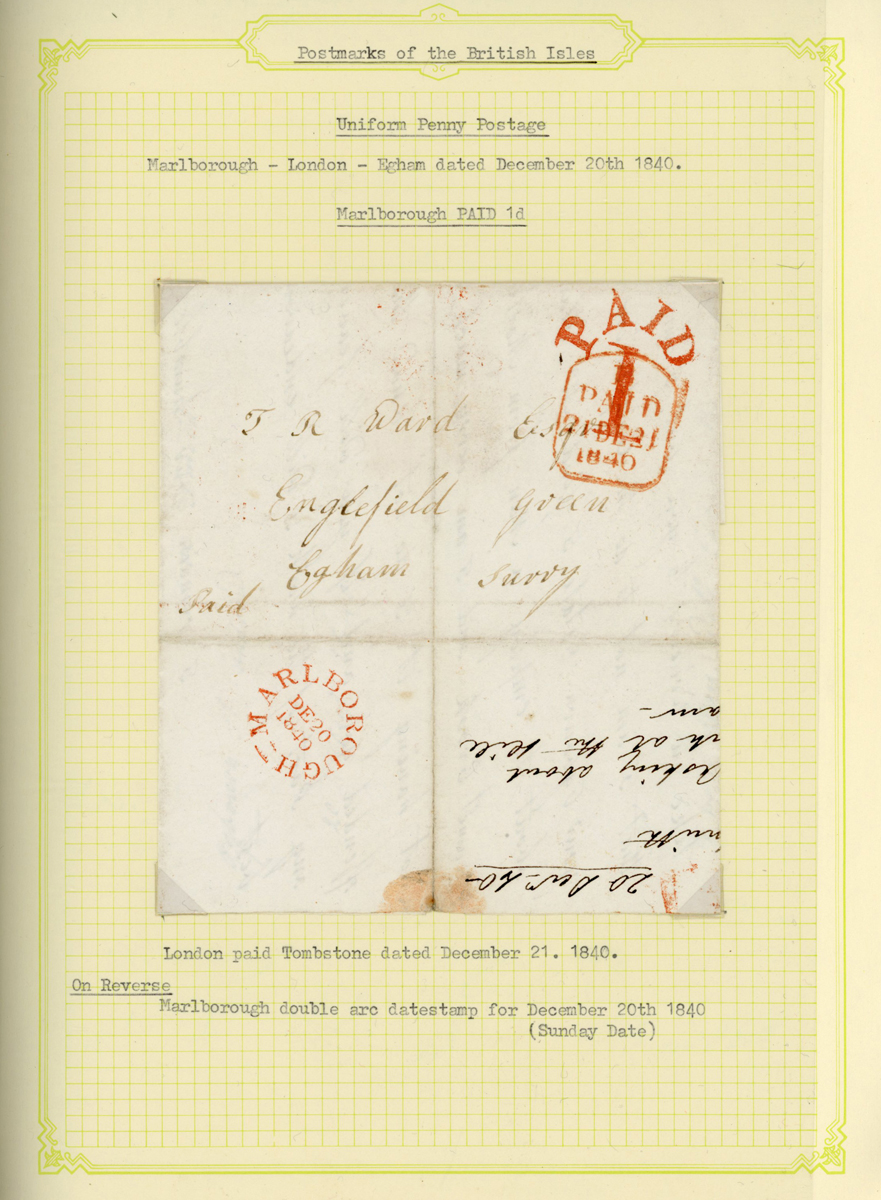 Postmarks of the British Isles
Uniform Penny Postage
Marlborough - London - Egham dated December 20th 1840.
Marlborough PAID 1d
PAID
1
PAID
21 DE 21
1840
T R Ward Esqr
Englefield Green
Egham Surry
Paid
MARLBOROUGH
DE 20
1840
20 Decr 40
Asking about
at the
London paid Tombstone dated December 21. 1840.
On Reverse
Marlborough double arc datestamp for December 20th 1840
(Sunday Date)